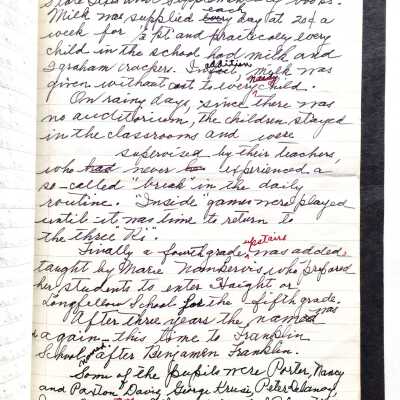 Milk was supplied each day at 20¢ a
week for ½ pt and practicaly every
child in the school had milk and
graham crackers. In addition, milk was
given without cost to every needy child.
On rainy days, since there was
no auditorium, the children stayed
in the classrooms and were
supervised by their teachers,
who had never experienced a
so-called "break" in the daily
routine. "Inside" games were played
until it was time to return to
the three "Rs".
Finally a fourth grade upstairs was added,
taught by Marie who prepared
her students to enter Haight or
Longfellow School for the fifth grade.
After three years the name was
again, this time to Franklin
School, after Benjamin Franklin.
Some of the pupils were Porter, Nancy
and Paxton Davis, George Krusi, Peter Delanoy,